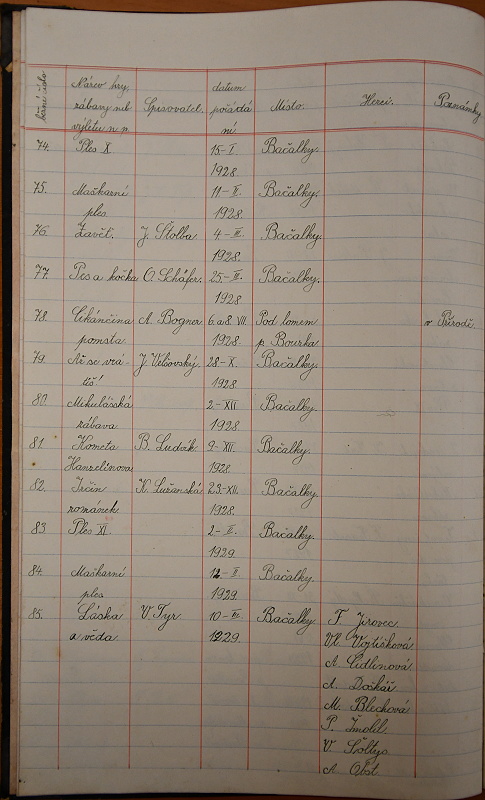 běžné číslo
Název hry,
zábavy neb
výletu n.p.
Spisovatel.
datum
pořádá
ní
Místo.
Herci.
Poznámky
74. Ples X 15-I. Bačalky.
1928.
75. Maškarní 11-II. Bačalky.
ples 1928.
76. Závěť. J. Štolba 4.-III. Bačalky.
1928.
77. Pes a kočka O. Schäfer. 25.-II. Bačalky.
1928
78. Cikánčina A. Bogner 6. a 8. VII. Pod lomem v Přírodě.
pomsta 1928 p. Bourka
79. Až se vrá- J. Velšovský 28-X. Bačalky.
tíš! 1928.
80. Mikulášská 2-XII Bačalky.
zábava 1928
81. Kometa B. Ludvík 9-XII. Bačalky.
Hanzelinova 1928.
82. Irčin K. Lužanská 23-XII. Bačalky.
románek. 1928.
83 Ples XI. 2-II. Bačalky.
1929.
84. Maškarní 12-II Bačalky.
ples 1929.
85. Láska V. Tyr. 10-III. Bačalky F. Jirovec.
a věda 1929. Vl. Vojtíšková
A. Cidlinová
A. Dočkář
M. Blechová
P. Šmolil
V. Šoltys
A. Obst